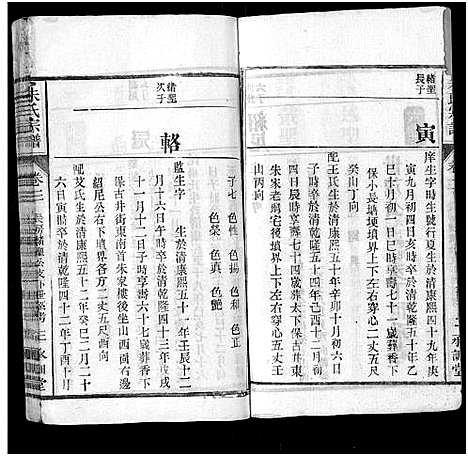 緒聖
長子
寅
庠生字時生號行夏生於清康熙四十九年庚
寅九月初四日亥時卒於清乾隆四十五年
巳十月初一日巳時享壽七十一歲葬香下
保小長塘埂填界上下左右穿心二丈五尺
癸山丁向
配王氏生於清康熙五十年辛卯十月初六日
子時卒於清乾隆五十四年己酉十二月初
四日未時享壽七十九歲葬太下保古井東
朱宋老塆宅後填界上下左右穿心二丈五
山丙向
緒聖
次子
輅
子七 色性 色揚 色和 色正
色榮 色真 色艷
監生字 生於清康熙五十一年壬辰十二
月十六日午時卒於清乾隆四十三年戊戌
十一月十二日子時享壽六十七歲葬香下
保古井街東首朱家樓後坐山西向
紹尼公右下填界各方二丈五尺酉向
配艾氏生於清康熙五十二年癸巳二月二十
六日寅時卒於清乾隆四十二年丁酉十月
朱氏宗譜
卷三
永訓堂